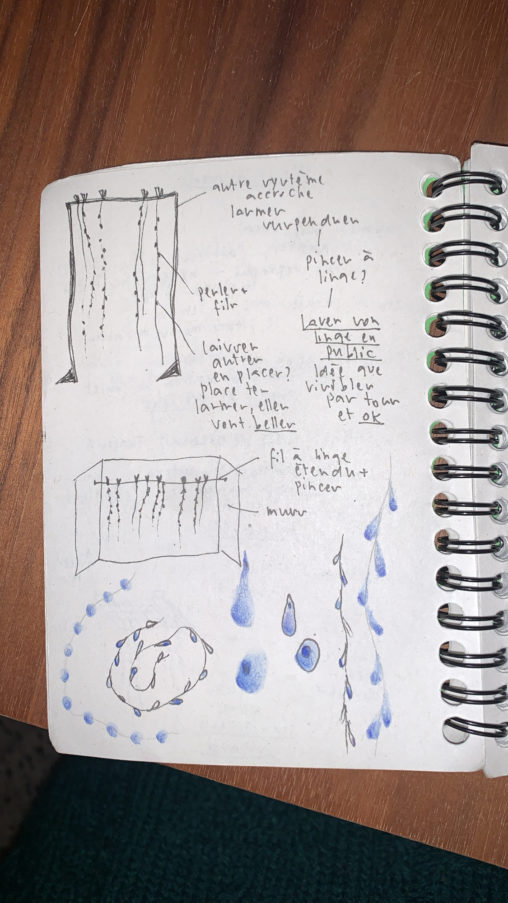 autre système
accroche
larmes
suspendues
pinces à
linge?
Laver son
linge en
public
Idée que
visibles
par tous
et ok
perles+
fils
laisser
autres
en placer?
place tes
larmes, elles
sont belles
fil à linge
étendu+
pinces
murs